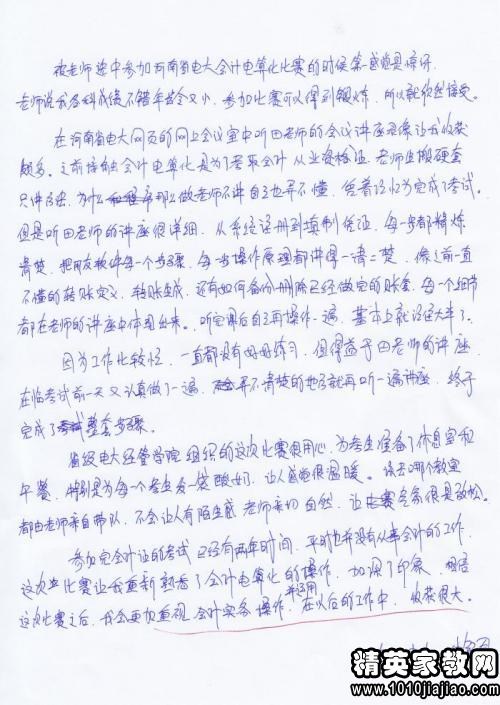 被老师选中参加河南省电大会计电算化比赛的时候第一感觉是惊讶,
老师说我各科成绩不错年龄又小,参加比赛可以得到锻炼,所以就欣然接受。
在河南省电大网页的网上会议室中听田老师的会议讲座录像让我收获
颇多。之前接触会计电算化是为了考取会计从业资格证,老师生搬硬套
只讲方法,为什么那么做老师不讲自己也弄不懂,凭着记忆为完成了考试。
但是听田老师的讲座很详细,从系统注册到填制凭证,每一步都精炼
清楚,把用友软件每一个步骤,每一步操作原理都讲得一清二楚,像之前一直
不懂的转账定义,转账生成,还有如何备份删除已经做完的账套,每一个细节
都在老师的讲座中体现出来。听完课后自己再操作一遍,基本上就没啥大事了。
因为工作比较忙,一直都没有好好练习,但得益于田老师的讲座,
在临考试前一天又认真做了一遍,弄不清楚的地方就再听一遍讲座,终于
完成了整套步骤。
省级电大经管学院组织的这次比赛很用心,为考生准备了休息室和
午餐,特别是为每个考生发一袋酸奶,让人感觉很温暖。该去哪个教室
都由老师亲自带队,不会让人有陌生感,老师亲切自然,让比赛气氛很是放松。
参加完会计证的考试已经有两年时间,平时也并没有从事会计的工作,
这次比赛让我重新熟悉了会计电算化的操作,加深了印象,相信
这次比赛之后,我会更加重视会计实务操作,并运用在以后的工作中,收获很大。
精英家教网
www.1010jiajiao.com